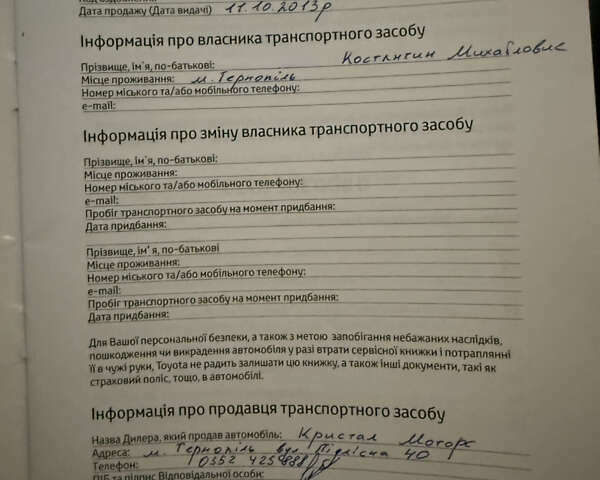 Дата продажу (Дата видачі) 11.10.2013р
Інформація про власника транспортного засобу
Прізвище, ім'я, по-батькові: Костянтин Михайлович
Місце проживання: м. Тернопіль
Номер міського та/або мобільного телефону:
e-mail:
Інформація про зміну власника транспортного засобу
Прізвище, ім'я, по-батькові:
Місце проживання:
Номер міського та/або мобільного телефону:
e-mail:
Пробіг транспортного засобу на момент придбання:
Дата придбання:
Прізвище, ім' я, по-батькові
Місце проживання:
Номер міського та/або мобільного телефону:
e-mail:
Пробіг транспортного засобу на момент придбання:
Дата придбання:
Для Вашої персональної безпеки, а також з метою запобігання небажаних наслідків,
пошкодження чи викрадення автомобіля у разі втрати сервісної книжки і потраплянні
її в чужі руки, Toyota не радить залишати цю книжку, а також інші документи, такі як
страховий поліс, тощо, в автомобілі.
Інформація про продавця транспортного засобу
Назва Дилера, який продав автомобіль: Кристал Моторс
Адреса: м. Тернопіль вул. Підлісна 40
Телефон: 0352 425
ПІБ та підпис Відповідальної особи: